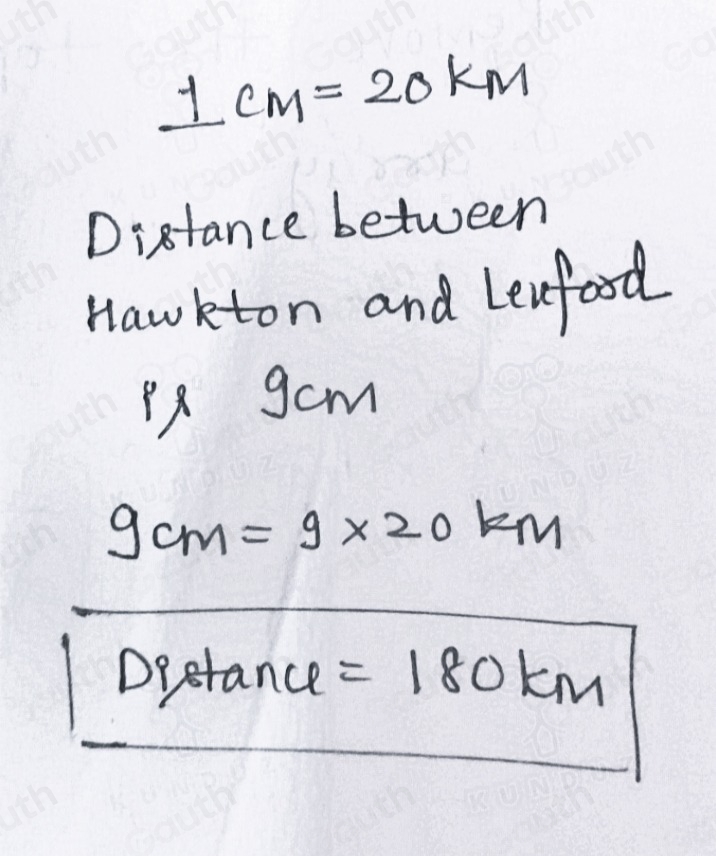 1 cm = 20 km
Distance between
Hawkton and Lenford
is 9cm
9cm = 9 × 20 km
Distance = 180 km